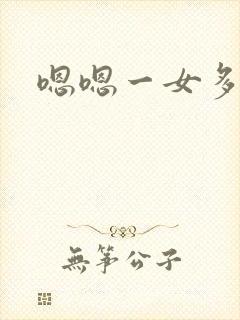 嗯嗯一女多
無筝公子